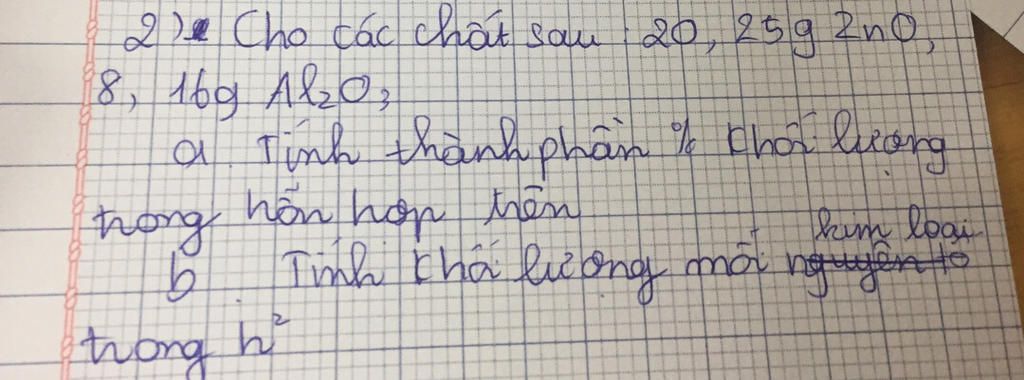 2) Cho các chất sau : 20, 25g ZnO,
8, 16g Al₂O₃
a. Tính thành phần % khối lượng
trong hỗn hợp trên
kim loại
b. Tính khối lượng mỗi nguyên tố
trong h²